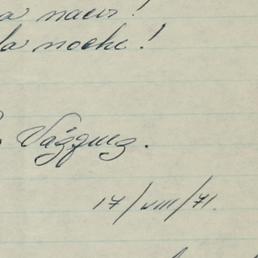 a nacer!
la noche!
Vázquez.
17/VIII/71.